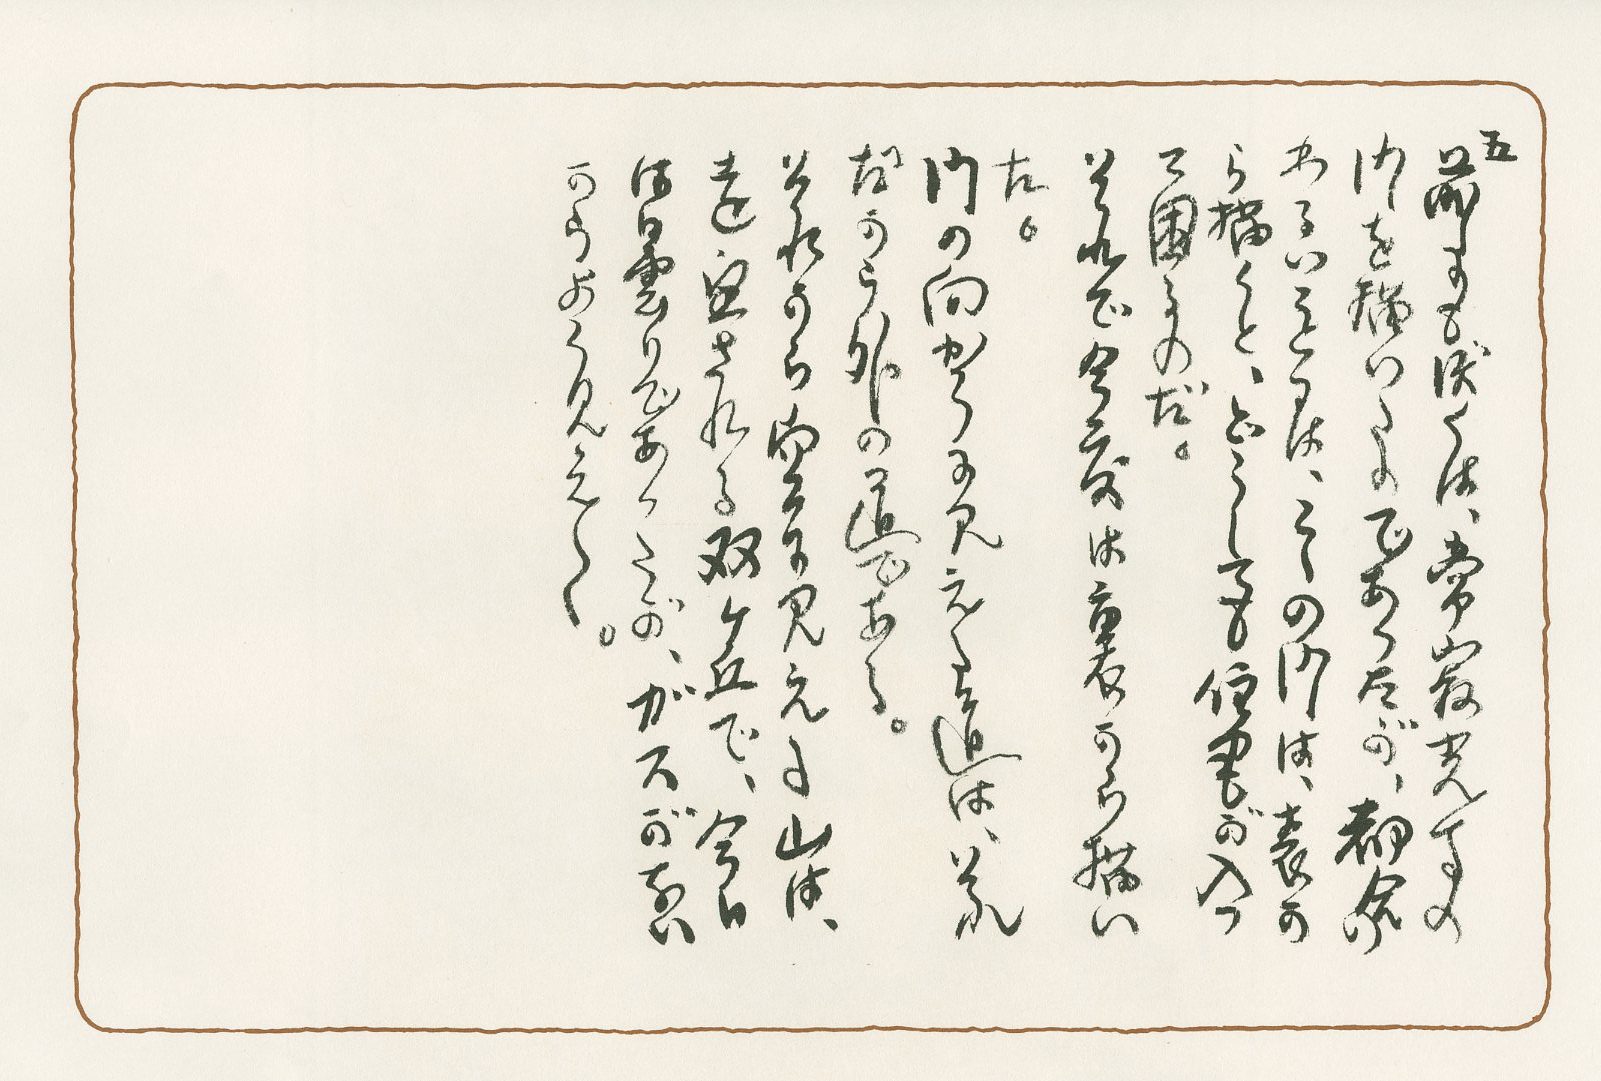 五
前にも僕は、常寂光寺の
門を描いたのであつたが、都合
わるいことには、ここの門は、表か
ら描くと、どうしても が入つ
て困るのだ。
それで今度は裏から描い
た。
門の向かうに見える道は、それ
だから外の道である。
それから向うに見える山は、
遠望される双ヶ丘で、今日
は曇りであつたが、ガスがない
からよう見える。